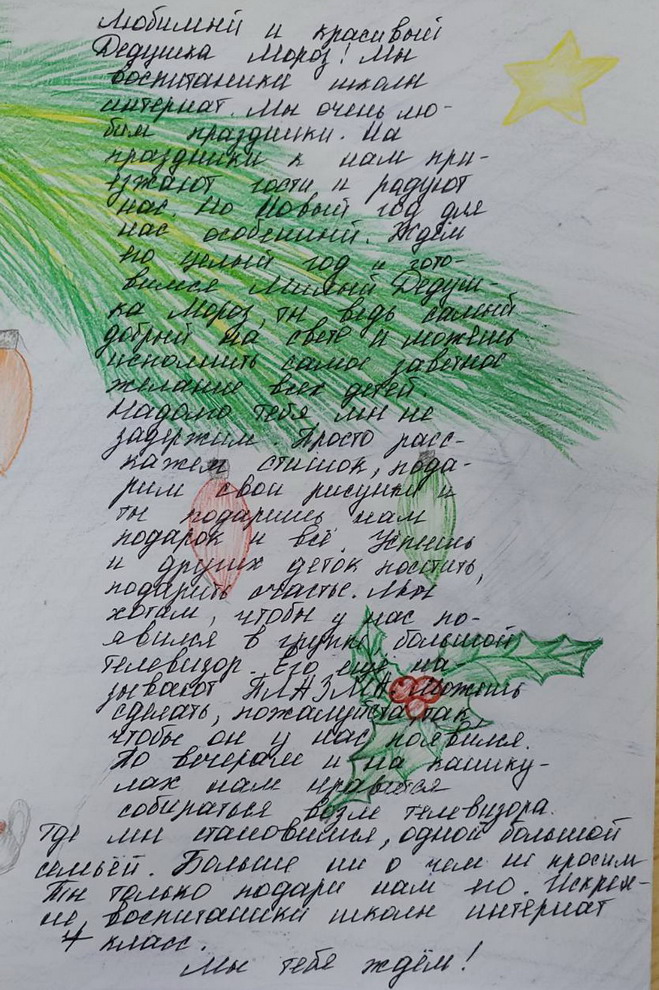 Любимый и красивый
Дедушка Мороз! Мы
воспитаники школы
интернат. Мы очень лю-
бим праздники. На
праздники к нам при-
езжают гости и радуют
нас. Но Новый год для
нас особенный. Ждём
его целый год и гото-
вимся. Милый Дедуш-
ка Мороз, ты ведь самый
добрый на свете и можешь
исполнить самое заветное
желание всех детей.
Надолго тебя мы не
задержим. Просто расс-
кажем стишок, пода-
рим свои рисунки и
ты подаришь нам
подарок и всё. Успеешь
и других деток посетить,
подарить счастье. Мы
хотим, чтобы у нас по-
явился в группе большой
телевизор. Его ещё на-
зывают ПЛАЗМА. Можешь
сделать, пожалуйста, так
чтобы он у нас появился.
По вечерам и на канику-
лах нам нравится
собираться возле телевизора.
Где мы становимся, одной большой
семьёй. Больше ни о чем не просим
Ты только подари нам его. Искрен-
не, воспитаники школы интернат
4 класс.
Мы тебя ждём!